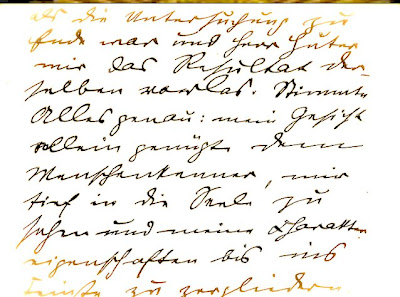 als die Untersuchung zu
Ende war und Herr Huter
mir das Resultat der-
selben vorlas. Stimmte
Alles genau: mein Gesicht
allein genügte dem
Menschenkenner, mir
tief in die Seele zu
sehen und meine Charakter
eigenschaften bis ins
Feinste zu zergliedern